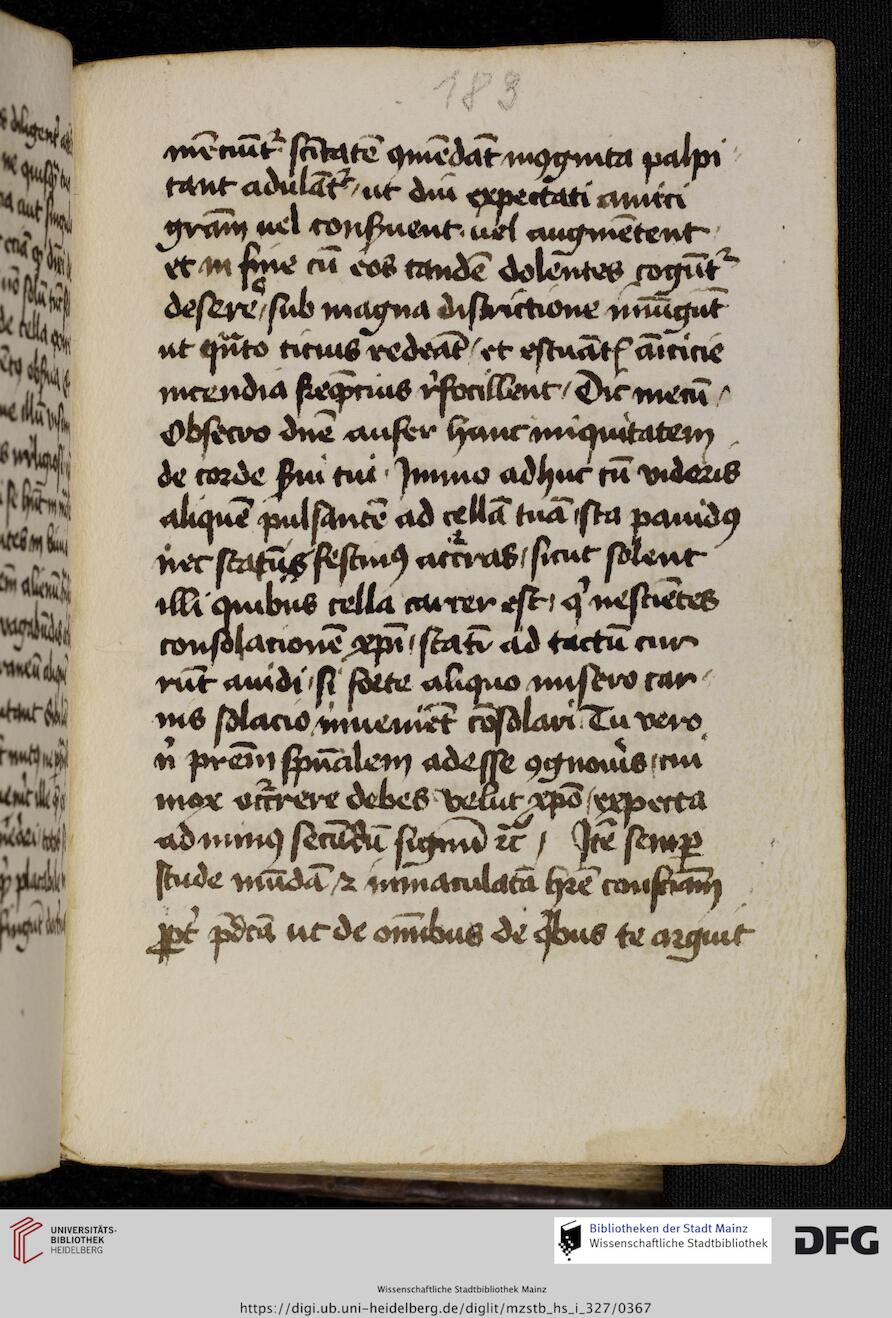 183
mētiūtᷣ sc̄itatē ꝯmēdāt ītognita palpi
tant adulātᷣ / ut diu expectati amici
grām uel conẜuent uel augmētent
et in fine cū eos tandē dolentes cogūtᷣ
deserē / sub magna districtione iniūgūt
ut qͣnto citius redeāt / et estuātꝭ āīcicie
incendia freqꝫcius rͥfocillent / Dic mecū /
Obsecro dn̄e aufer hanc iniquitatem
de corde ẜui tui · Immo adhuc cū videris
aliquē pulsantē ad cellā tuā / sta pauidꝰ
nec statūs festinꝰ accͬras / sicut solent
illi quibus cella carcer est / qͥ nesciētes
consolacionē xp̄i / statī ad tactū cur
rūt auidi / si forte aliquo misero car
nis solacio inueniēt cōsolari · Tu vero
nͥ prēm sp̄ualem adesse ꝯgnouͥs / cui
mox occͬrere debes velut xp̄o / expecta
ad minꝰ secūdū signū ⁊c̄ / Itē semꝑ
stude mūdā ⁊ immaculatā hr̄e conscīam
ꝓpt᷑ p̄dcā ut de om̄ibus de qͥbus te arguit
UNIVERSITÄTS-
BIBLIOTHEK
HEIDELBERG
Bibliotheken der Stadt Mainz
Wissenschaftliche Stadtbibliothek
DFG
Wissenschaftliche Stadtbibliothek Mainz
https://digi.ub.uni-heidelberg.de/diglit/mzstb_hs_i_327/0367